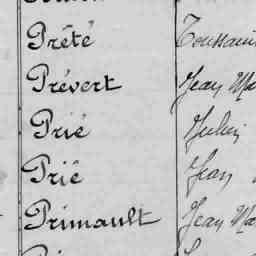 Prêté Toussain
Prévert Jean Ma
Prié Julien
Prié Jean
Primault Jean Ma